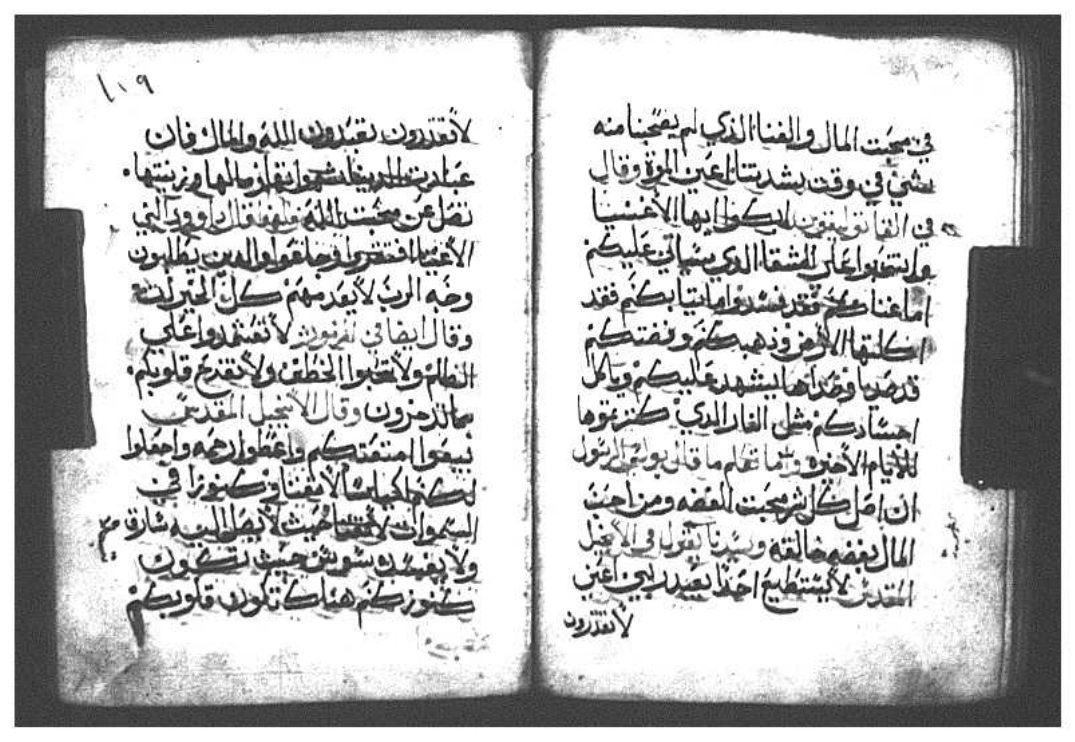 في محبت المال والغنا الذي لم يصحبنا منه
شي في وقت بشدتنا اعين الموت وقال
في القاتوليقون ابكوا ايها الاغنيا
وانتحبوا علي الشقا الذي سياتي عليكم
اما غناكم فقد فسد واما ثيابكم فقد
اكلتها الارض وذهبكم وفضتكم
قد صديا وصداهما يشهد عليكم وياكل
اجسادكم مثل النار الذي كنزتموها
للايام الاخيرة ما قال بولس الرسول
ان اصل كل شر محبت الفضه ومن احب
المال يغضه خالقه وسيدنا يقول في الانجيل
المقدس لا يستطيع احد يعبد ربين اعني
لا تقدرون
١٠٩
لا تقدرون تعبدون الله والمال فان
عبادت مالها وزينتها
تضل عن محبت الله قال داوود النبي
الاغنيا افتقروا وجاعوا والذين يطلبون
وجه الرب لا يعدمهم كل الخيرات
وقال ايضا في المزمور لا تعتمدوا علي
الظلم ولا تحبوا الخطف ولا تقدح قلوبكم
وقال الانجيل المقدس
بيعوا امتعتكم واعطوا رحمه واجعلوا
لكم اكياسا لا تفنا وكنوزا في
السموات لا تفنا حيث لا يصل اليه سارق
ولا يفسد سوس حيث تكون
كنوزكم هناك تكون قلوبكم